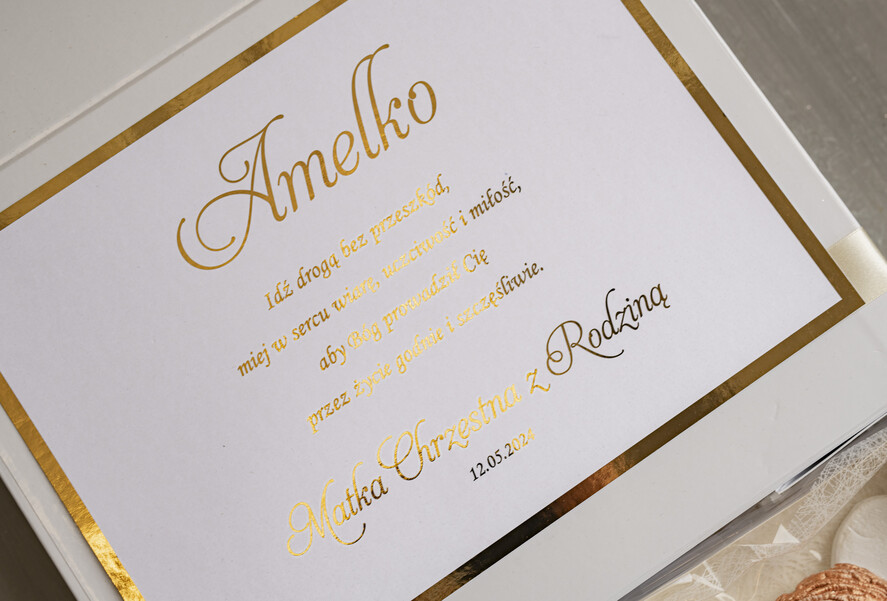 Amelko
Idź drogą bez przeszkód,
miej w sercu wiarę, uczciwość i miłość,
aby Bóg prowadził Cię
przez życie godnie i szczęśliwie.
Matka Chrzestna z Rodziną
12.05.2024